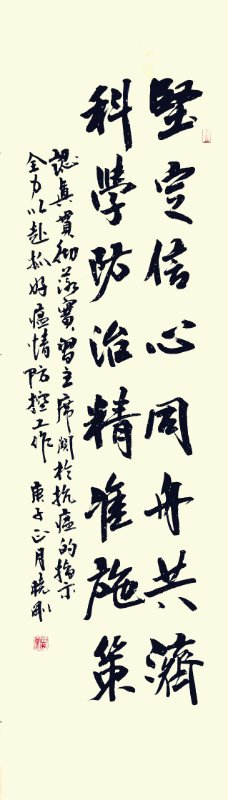 堅定信心同舟共濟
科學防治精準施策
認真貫徹落實習主席関於抗疫的指示
全力以赴抓好疫情防控工作 庚子正月曉剛